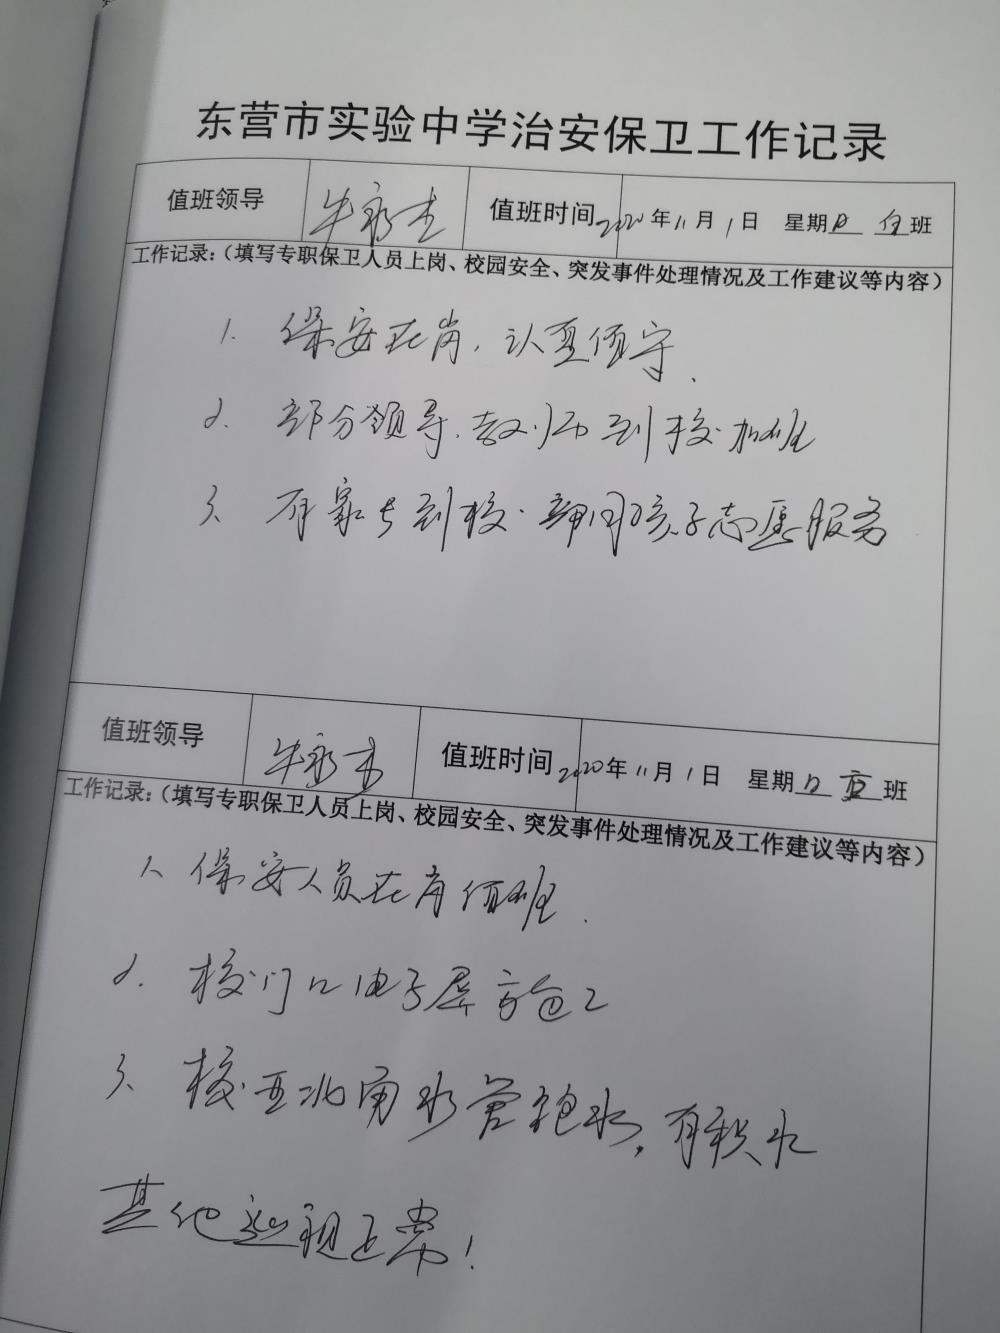 东营市实验中学治安保卫工作记录
值班领导 牛永杰 值班时间 2020年11月1日 星期日 白班
工作记录：（填写专职保卫人员上岗、校园安全、突发事件处理情况及工作建议等内容）
1. 保安在岗，认真值守.
2. 部分领导、教师到校加班
3、有家长到校，陪同孩子志愿服务
值班领导 牛永杰 值班时间 2020年11月1日 星期日 夜班
工作记录：（填写专职保卫人员上岗、校园安全、突发事件处理情况及工作建议等内容）
1、保安人员在岗值班.
2. 校门口电子屏完工
3、校西北角水管跑水，有积水
其他巡视正常！